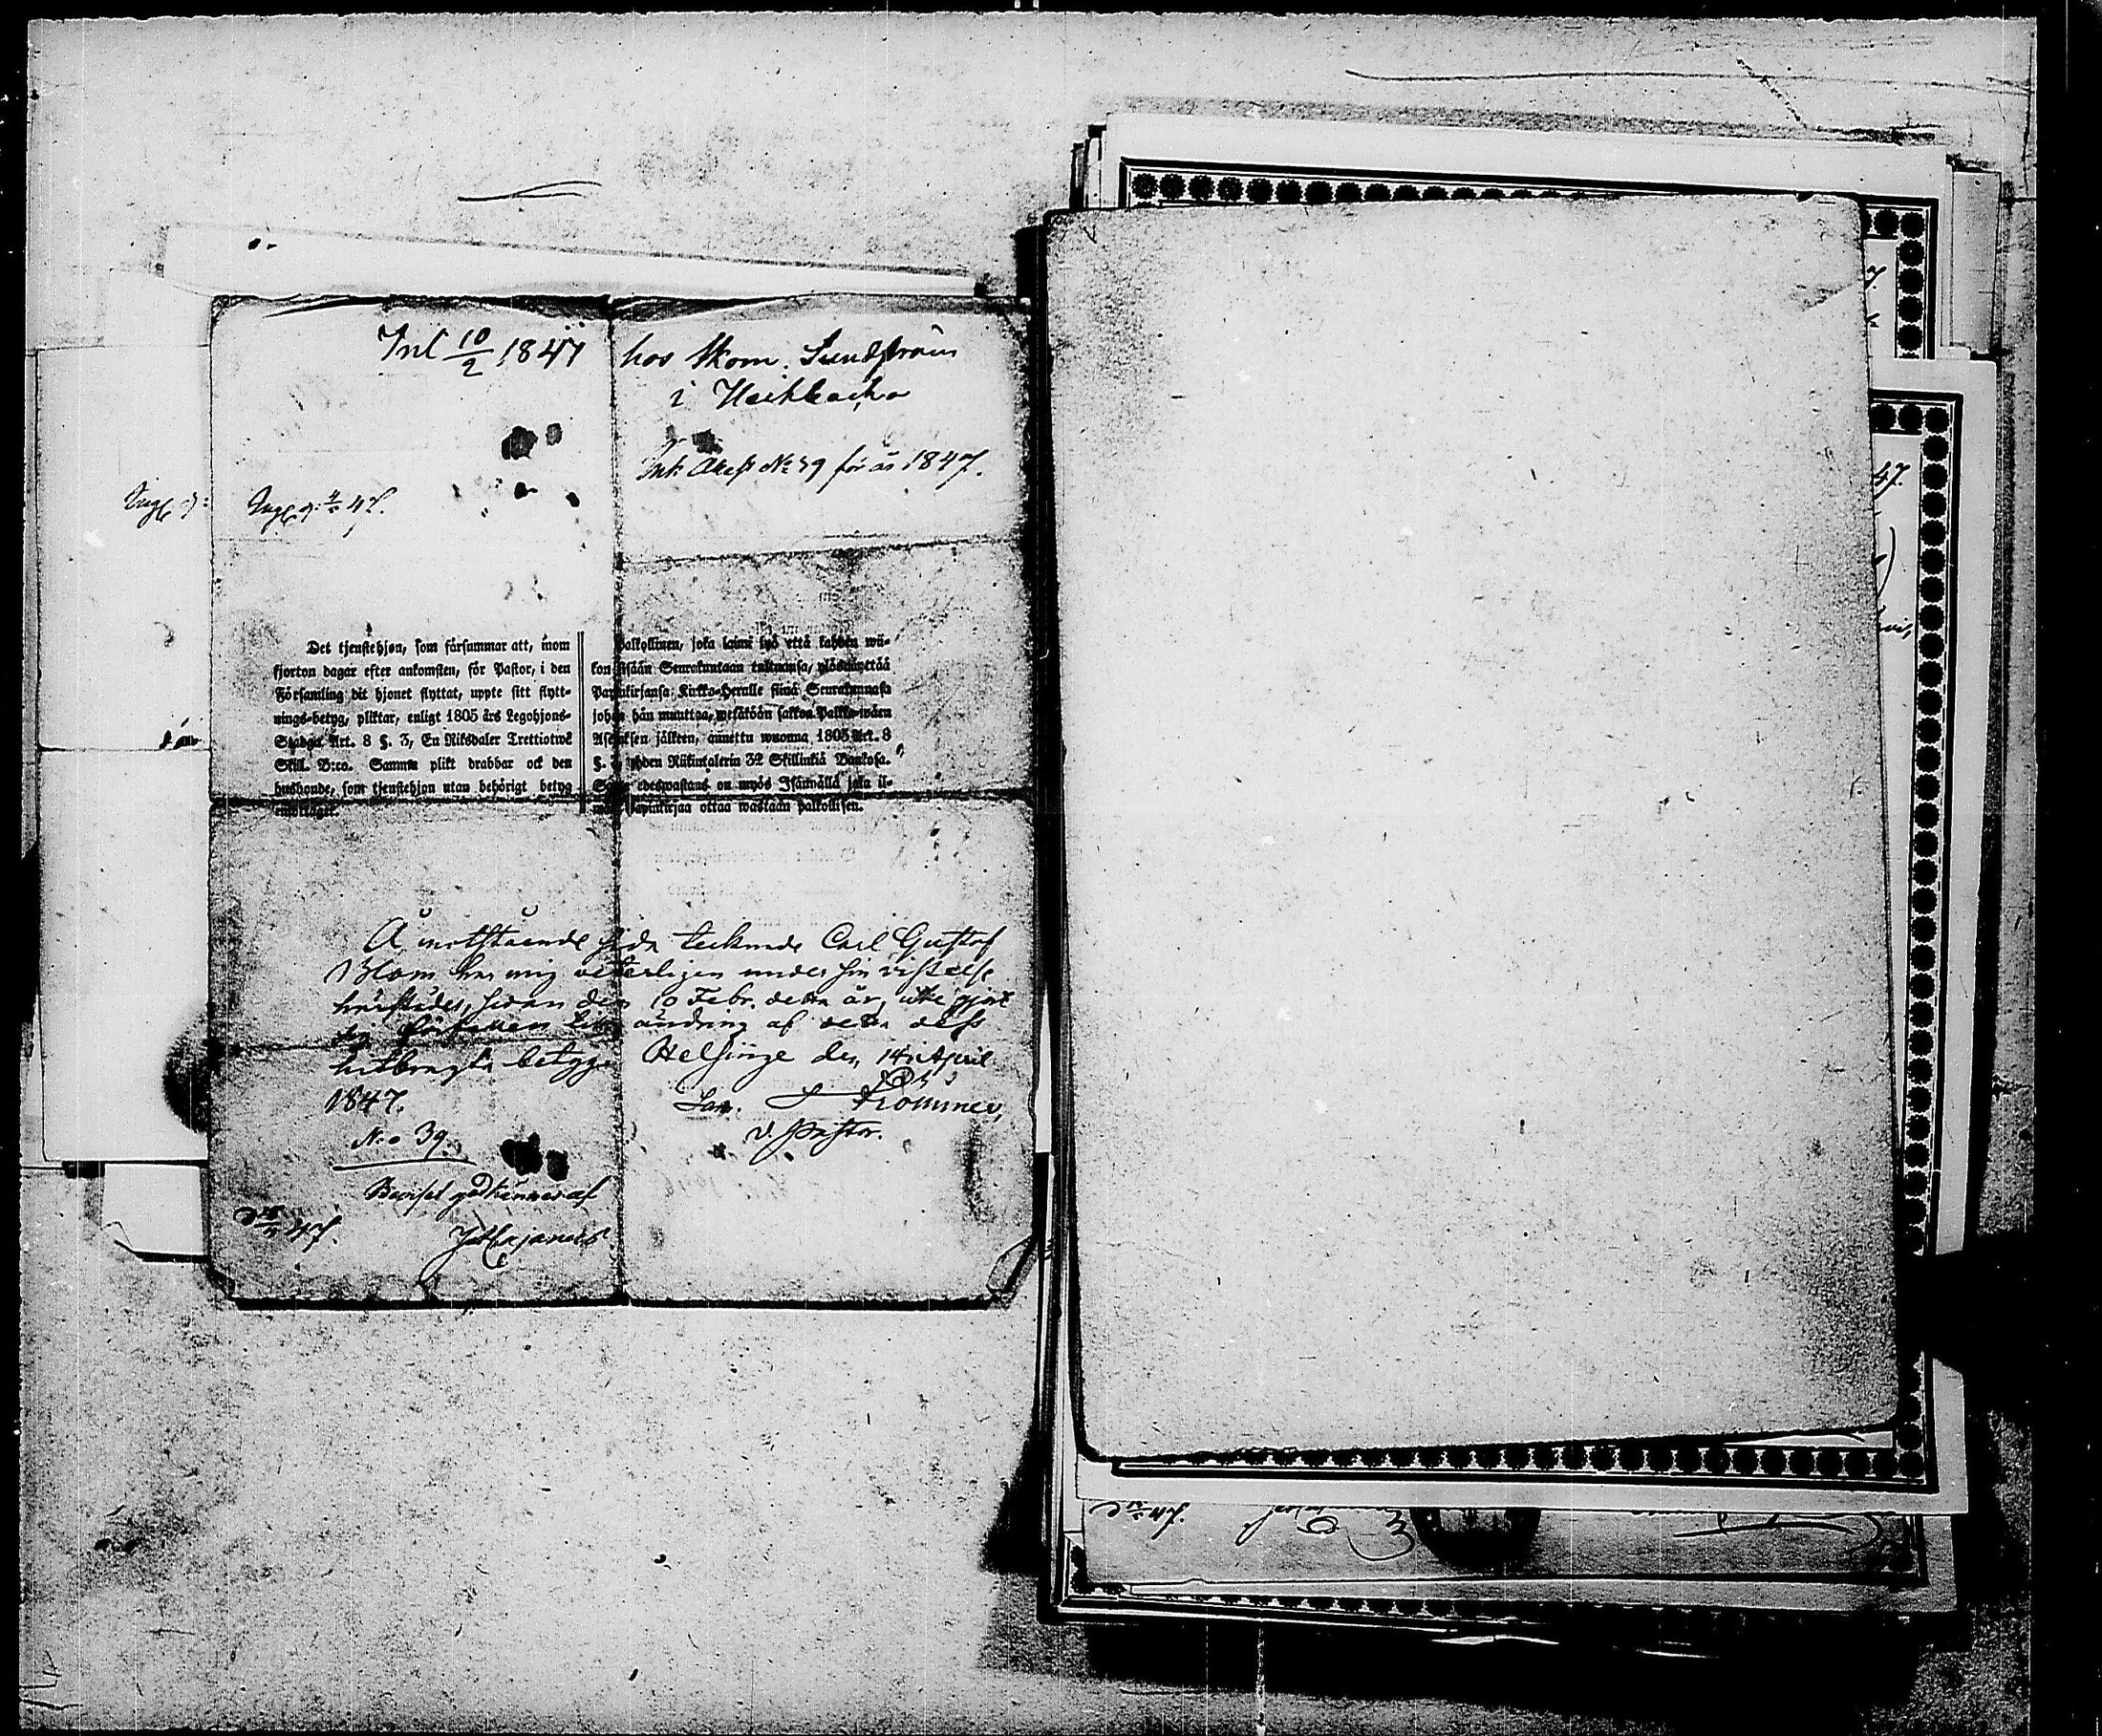 Inl 10/2 1847 hos Skom. Sundström
i
Ink Attest No 39 för år 1847.
47.
Det tjenstehjon, som försummar att, inom
fjorton dagar efter ankomsten, för Pastor, i den
Församling dit hjonet flyttat, uppte sitt flytt-
nings-betyg, pliktar, enligt 1805 års Legohjons-
Stadga Art. 8 §. 3, En Riksdaler Trettiotwå
Skill. B:co. Samma plikt drabbar ock den
husbonde, som tjenstehjon utan behörigt betyg
emottaget.
Palkollinen, joka laimi lyö että kahden wii-
kon sisään Seurakuntaan tultuansa, ylösnäyttää
Papinkirjansa Kirkko-Herralle siinä Seurakunnassa
johon hän muuttaa, wetäköön sakkoa Palkka-wäen
Asetuksen jälkeen, annettu wuonna 1805 Art. 8
§. 3 yhden Riikintalerin 32 Skillinkiä Bankosa.
edeswastaus on myös Isännällä joka il-
man papinkirjaa ottaa wastaan palkollisen.
Å motstående sida tecknade Carl Gustaf
Blom har mig veterligen under sin vistelse
härstädes, sedan den 10 Febr. detta år, icke gjort
sig förfallen till ändring af detta dess
hitbragta betyg. Helsinge den 14 April
1847.
v. Pastor.
No 39.
Beviset godkännes af
47.
Cajanus
47.